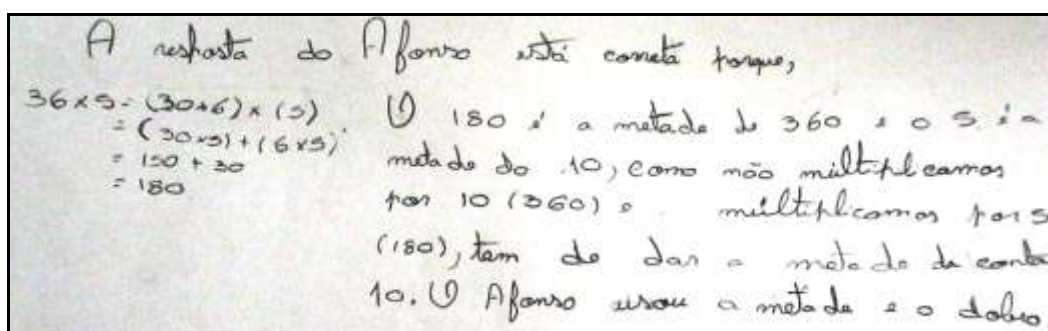 A resposta do Afonso está correta porque,
36 x 5 = (30+6) x (5)
= (30x5) + (6x5)
= 150 + 30
= 180
O 180 é a metade de 360 e o 5 é a
metade do 10, como não múltiplicamos
por 10 (360) e múltiplicamos por 5
(180), tem de dar a metade da conta
10. O Afonso usou a metade e o dobro